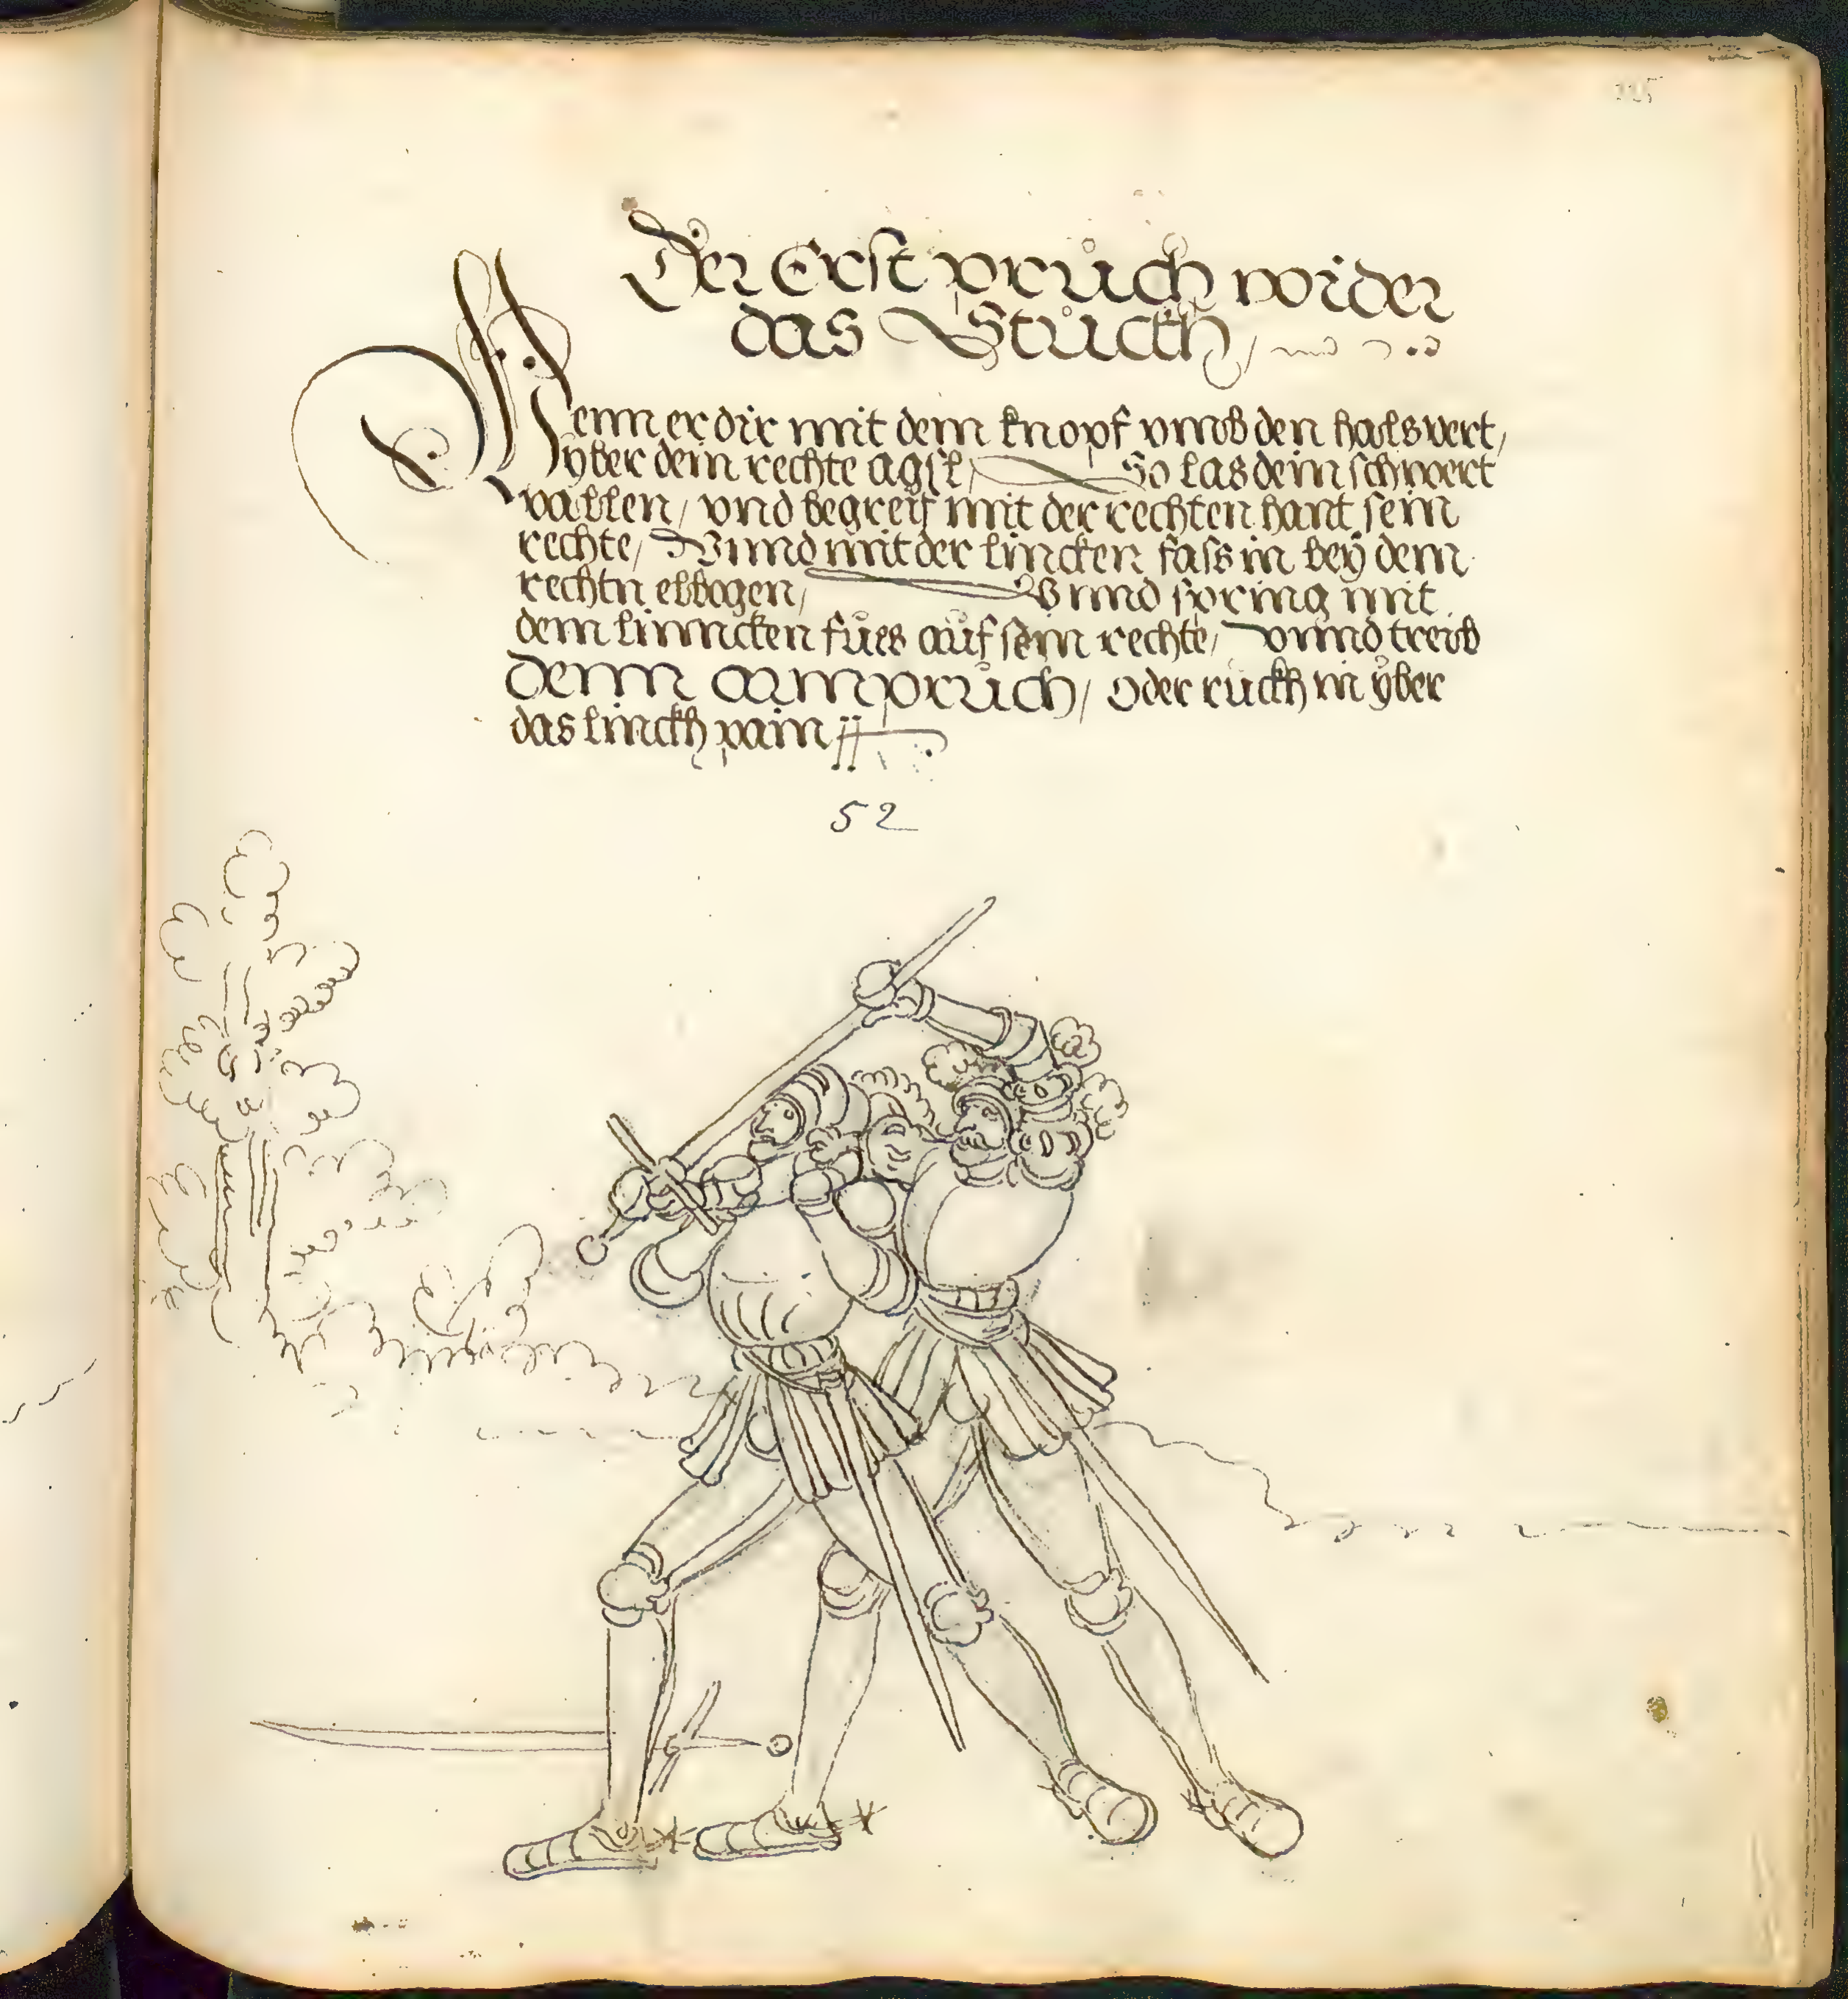 125
Der Erst pruch wider
das Stuckh /
Wenn er dir mit dem knopf vmb den hals vert /
yber dein rechte agsl / So las dein schwert
vallen / vnd begreif mit der rechten hant sein
rechte / Vnnd mit der lincken fass in bey dem
rechtn elbogen / Vnnd spring mit
dem linncken fůes auf sein rechte / vnnd treib
denn armpruch / oder ruckh in yber
das linckh pain //
52